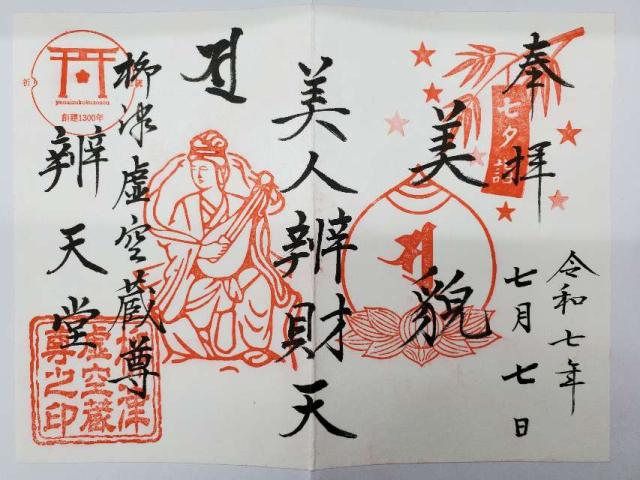 奉拝
七夕詣
令和七年
七月七日
美貌
美人辨財天
柳津虚空蔵尊
辨天堂
祈り
yanaizukokuzoson
創建1300年
柳津
虚空蔵
尊之印